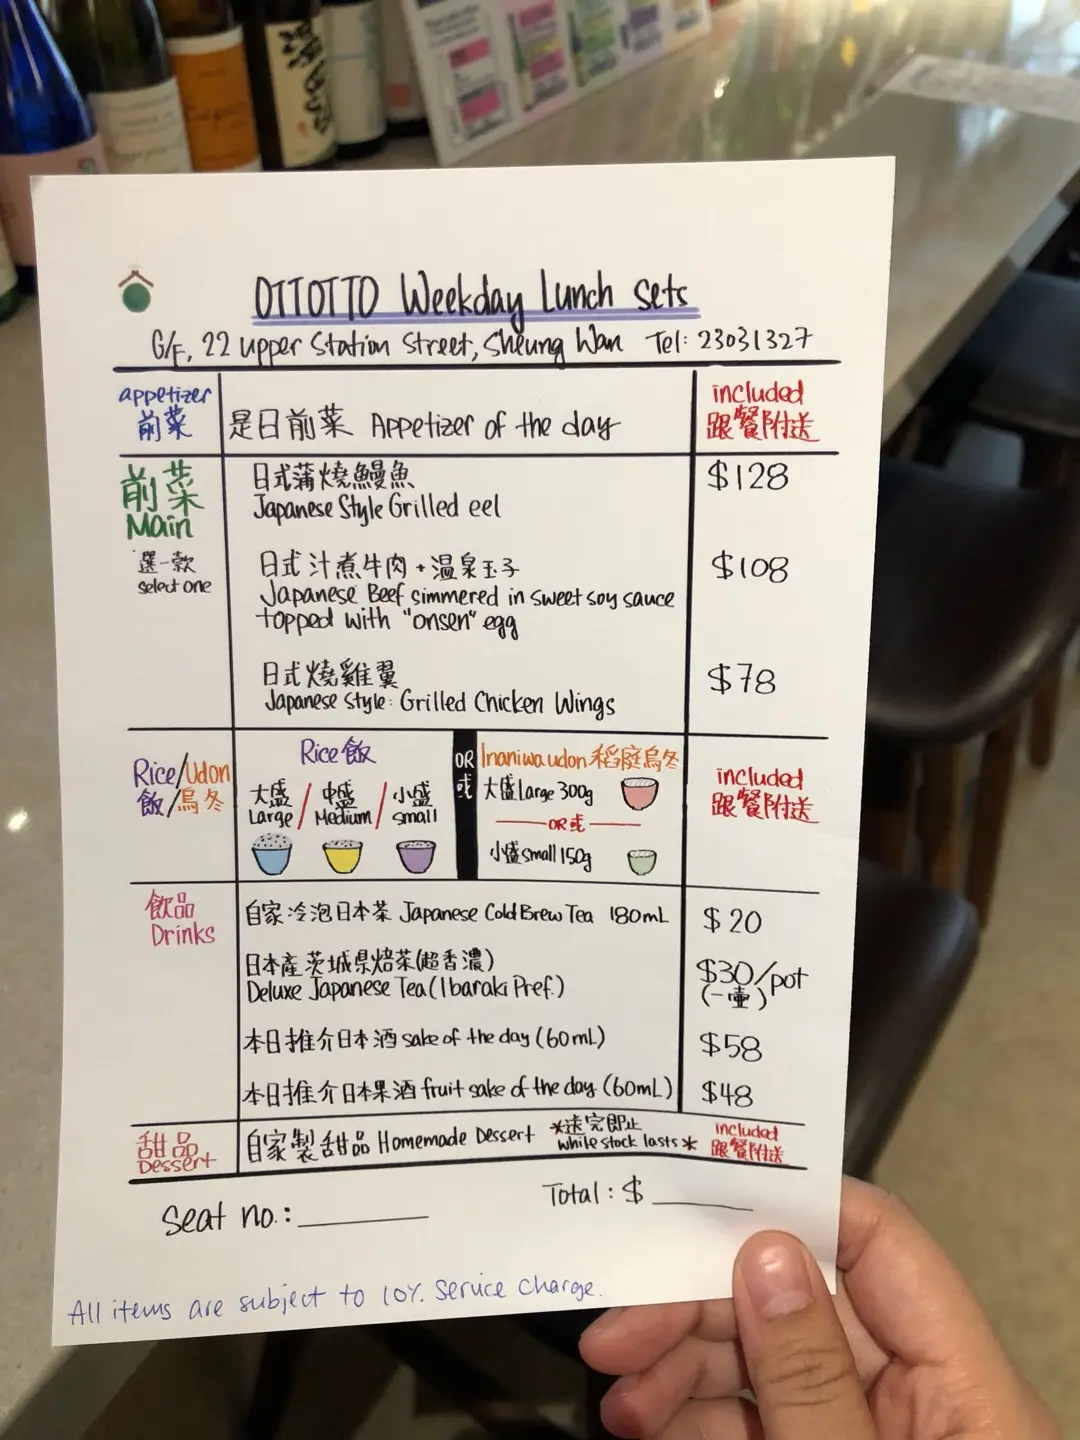 OTTOTTO Weekday Lunch Sets
G/F, 22 Upper Station Street, Sheung Wan Tel: 23031327
appetizer
前菜
是日前菜 Appetizer of the day
included
跟餐附送
前菜
Main
選一款
select one
日式蒲燒鰻魚
Japanese Style Grilled eel
$128
日式汁煮牛肉 + 温泉玉子
Japanese Beef simmered in sweet soy sauce
topped with "onsen" egg
$108
日式燒雞翼
Japanese Style: Grilled Chicken Wings
$78
Rice/Udon
飯/烏冬
Rice 飯
大盛 / 中盛 / 小盛
Large / Medium / small
OR
或
Inaniwa udon 稻庭烏冬
大盛 Large 300g
OR 或
小盛 small 150g
included
跟餐附送
飲品
Drinks
自家冷泡日本茶 Japanese Cold Brew Tea 180mL
$20
日本產茨城県焙茶(超香濃)
Deluxe Japanese Tea (Ibaraki Pref.)
$30/pot
(一壷)
本日推介日本酒 sake of the day (60mL)
$58
本日推介日本果酒 fruit sake of the day (60mL)
$48
甜品
Dessert
自家製甜品 Homemade Dessert
*送完即止
while stock lasts*
included
跟餐附送
Seat no.:
Total: $
All items are subject to 10% Service Charge.